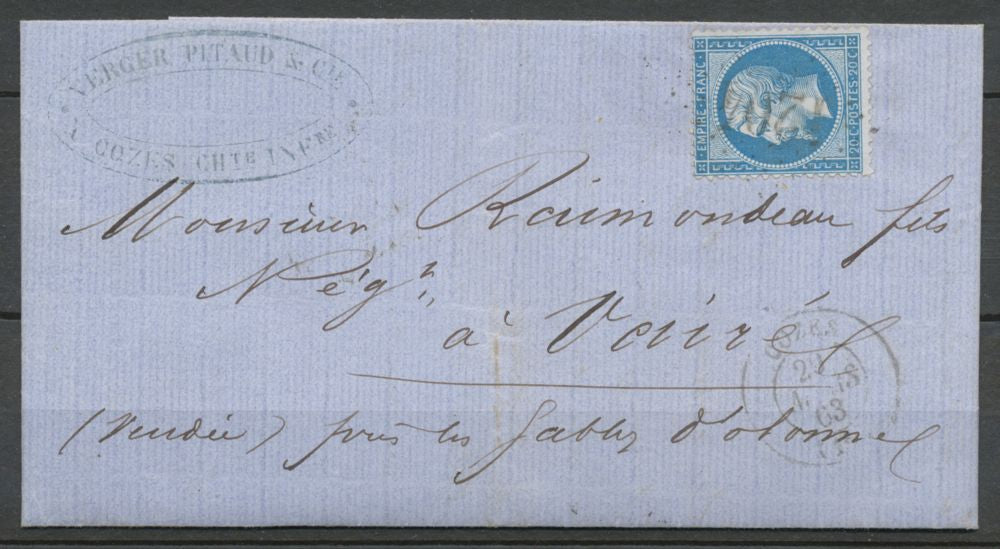 VERGER PITAUD & CIE
A COZES CHTE INFRE
EMPIRE · FRANC ·
20 C · POSTES · 20 C
Monsieur Raimondeau fils
Négt,
à Vairé
COZES
29
63
(Vendée) près les Sables d'olonnes